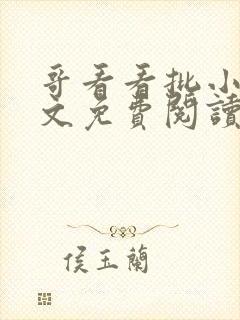 哥看看批小
文免費閱讀
侯玉蘭